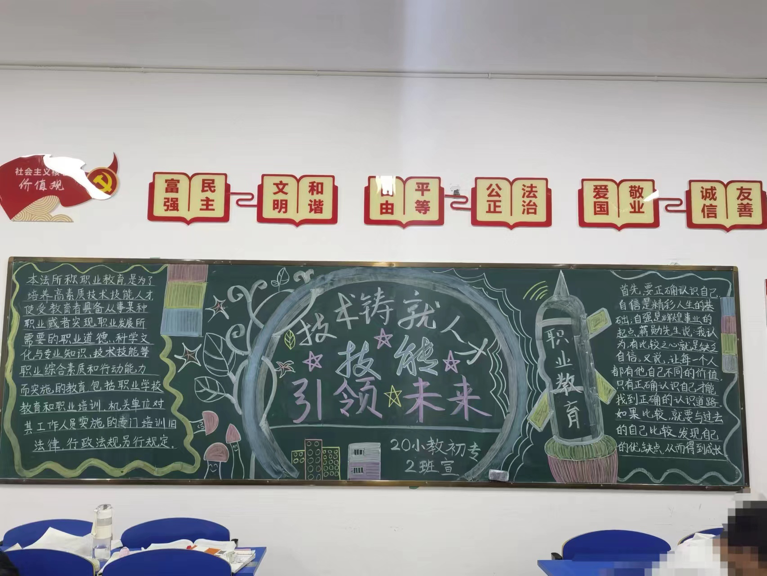 社会主义核
价值观
富强 民主
文明 和谐
自由 平等
公正 法治
爱国 敬业
诚信 友善
本法所称职业教育是为了
培养高素质技术技能人才
使受教育者具备从事某种
职业或者实现职业发展所
需要的职业道德、科学文
化与专业知识、技术技能等
职业综合素质和行动能力
而实施的教育包括职业学校
教育和职业培训。机关单位对
其工作人员实施的专门培训由
法律、行政法规另行规定.
技术铸就人才
技能
引领未来
20小教初专
2班宣
职业教育
首先,要正确认识自己
自信是精彩人生的基
础,自强是辉煌事业的
起点,蒋勋先生说,我认
为有比较之心就是缺乏
自信。又说,让每一个人
都有他自己不同的价值,
只有正确认识自己才能
找到正确的认识道路,
如果比较,就要与过去
的自己比较,发现自己
的优缺点,从而得到成长